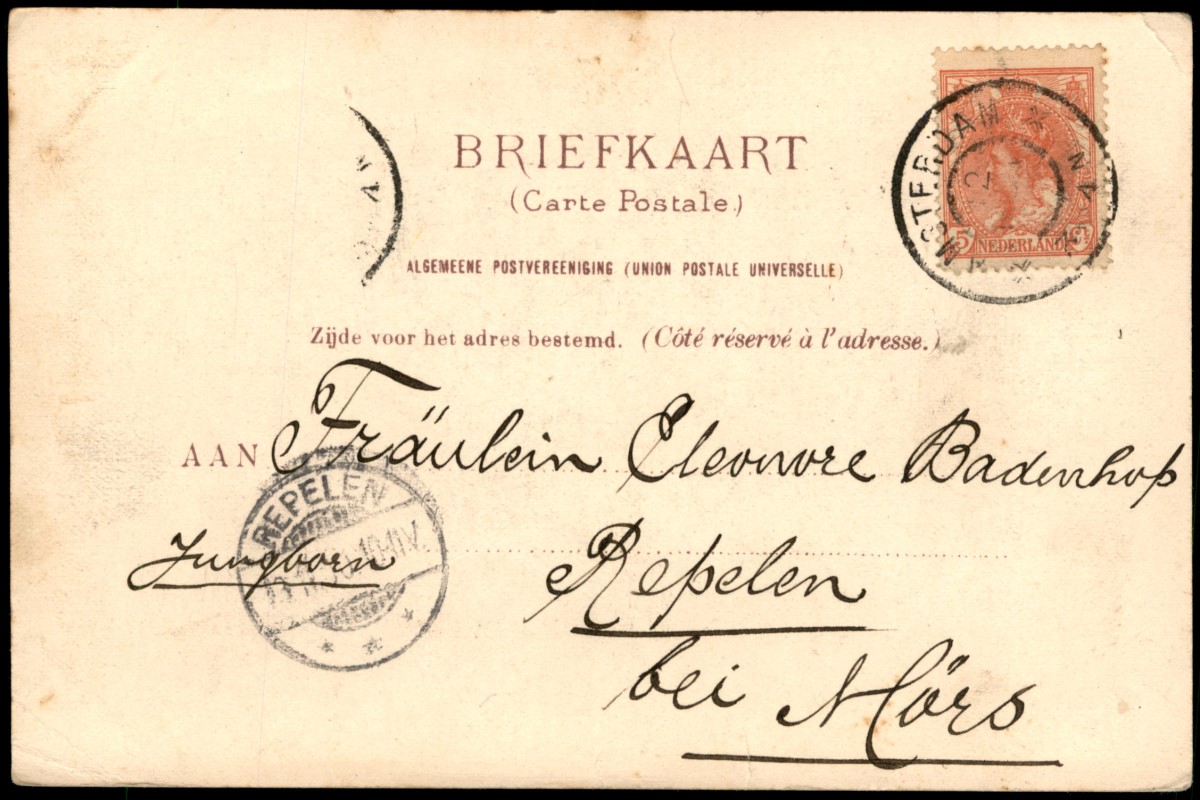 BRIEFKAART
(Carte Postale.)
ALGEMEENE POSTVEREENIGING (UNION POSTALE UNIVERSELLE)
Zijde voor het adres bestemd. (Côté réservé à l'adresse.)
AMSTERDAM
5 NEDERLAND
AAN Fräulein Eleonore Badenhop
REPELEN
Jungborn
Repelen
bei Mörs